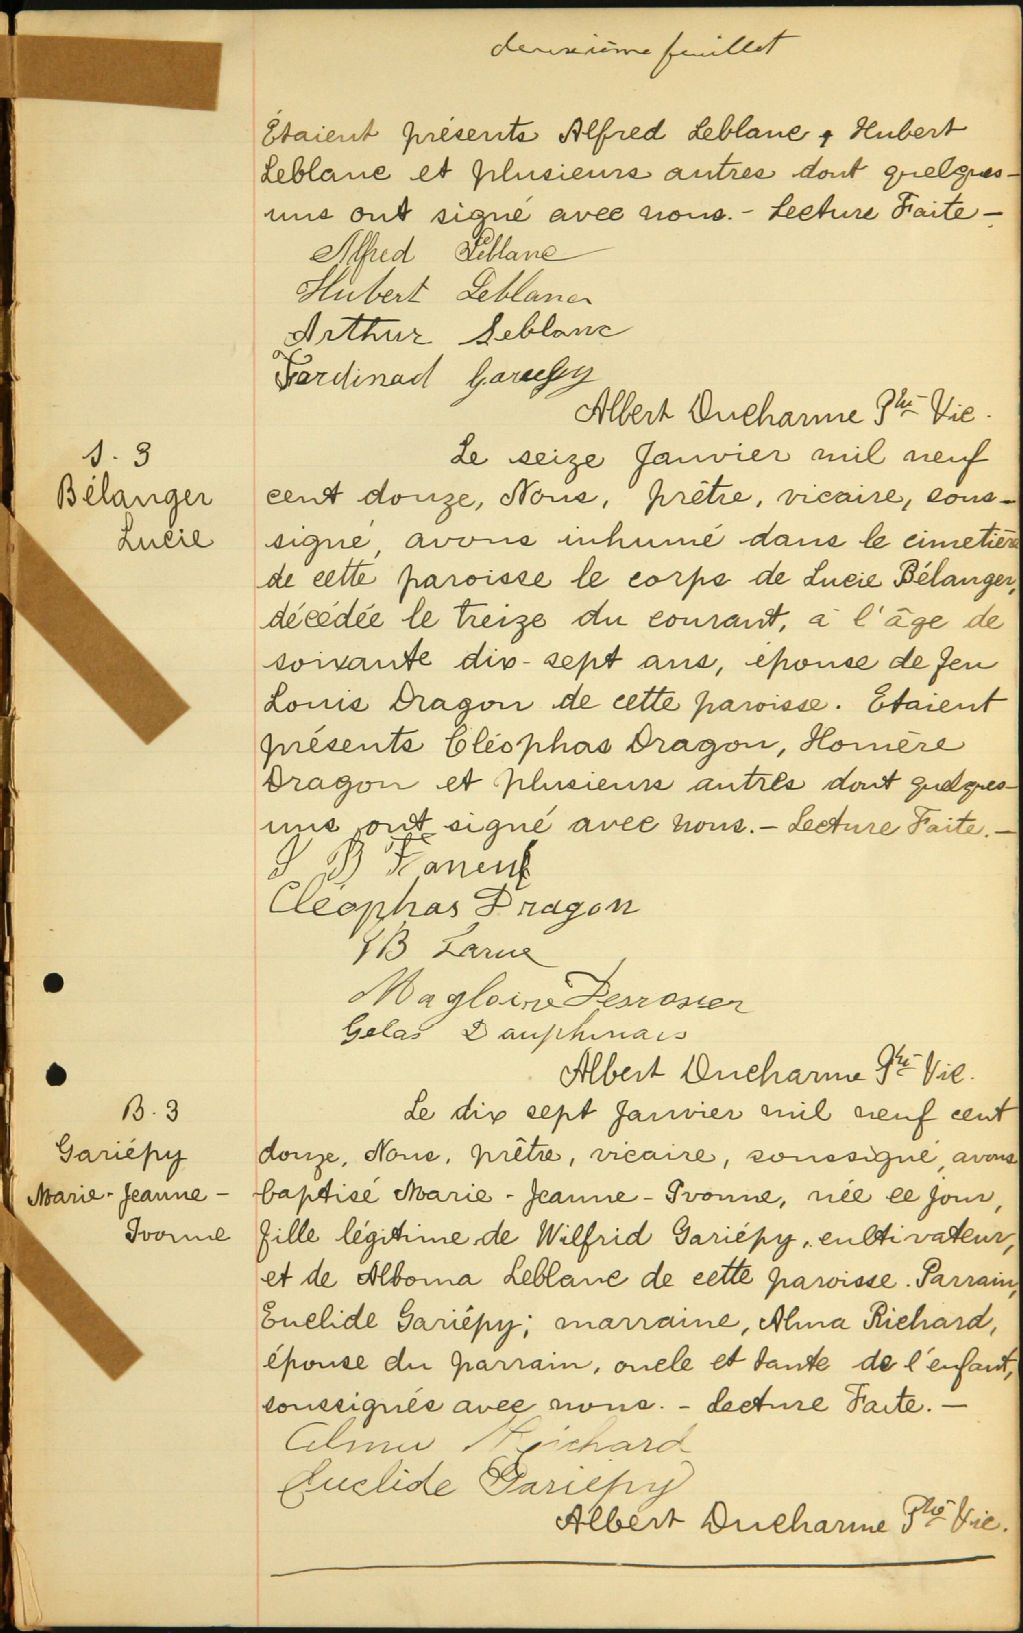 deuxième feuillet
Étaient présents Alfred Leblanc, Hubert
Leblanc et plusieurs autres dont quelques-
uns ont signé avec nous. - Lecture Faite -
Alfred Leblanc
Hubert Leblanc
Arthur Leblanc
Ferdinad
Albert Ducharme Ptre Vic.
S. 3
Bélanger
Lucie
Le seize Janvier mil neuf
cent douze, Nous, prêtre, vicaire, sous-
signé, avons inhumé dans le cimetière
de cette paroisse le corps de Lucie Bélanger,
décédée le treize du courant, à l'âge de
soixante dix-sept ans, épouse de feu
Louis Dragon de cette paroisse. Etaient
présents Cléophas Dragon, Homère
Dragon et plusieurs autres dont quelques-
uns ont signé avec nous. - Lecture Faite. -
Faneuf
Cléophas Dragon
JB Larue
Magloire Desrosier
Gelas Dauphinais
Albert Ducharme Ptre Vic.
B. 3
Gariépy
Marie-Jeanne-
Ivonne
Le dix sept Janvier mil neuf cent
douze, Nous, prêtre, vicaire, soussigné, avons
baptisé Marie-Jeanne-Ivonne, née ce jour,
fille légitime de Wilfrid Gariépy, cultivateur,
et de Alboma Leblanc de cette paroisse. Parrain,
Euclide Gariépy; marraine, Alma Richard,
épouse du parrain, oncle et tante de l'enfant,
soussignés avec nous. - Lecture Faite. -
Alma Richard
Euclide Gariépy
Albert Ducharme Ptre Vic.